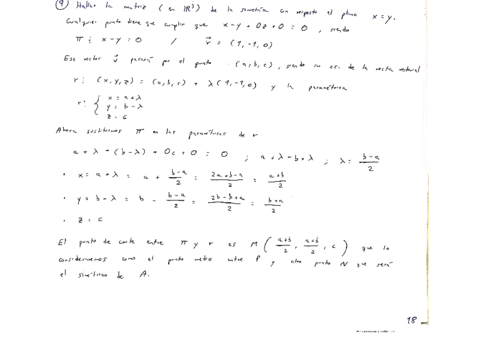 9) Hallar la matriz (en ℝ³) de la simetría con respecto al plano x = y.
Cualquier punto tiene que cumplir que x - y + 0z + 0 = 0, siendo
π : x - y = 0 / v⃗ = (1, -1, 0)
Ese vector v⃗ pasará por el punto (a, b, c), siendo su ec. de la recta vectorial
r : (x, y, z) = (a, b, c) + λ (1, -1, 0) y la paramétrica
r : { x = a + λ
y = b - λ
z = c
Ahora sustituimos π en las paramétricas de r
a + λ - (b - λ) + 0c + 0 = 0 ; a + λ = b + λ ; λ = b-a/2
• x = a + λ = a + b-a/2 = 2a+b-a/2 = a+b/2
• y = b - λ = b - b-a/2 = 2b-b+a/2 = b+a/2
• z = c
El punto de corte entre π y r es M (a+b/2, a+b/2, c) que lo
consideraremos como el punto medio entre P y otro punto N que será
el simétrico de A.
18